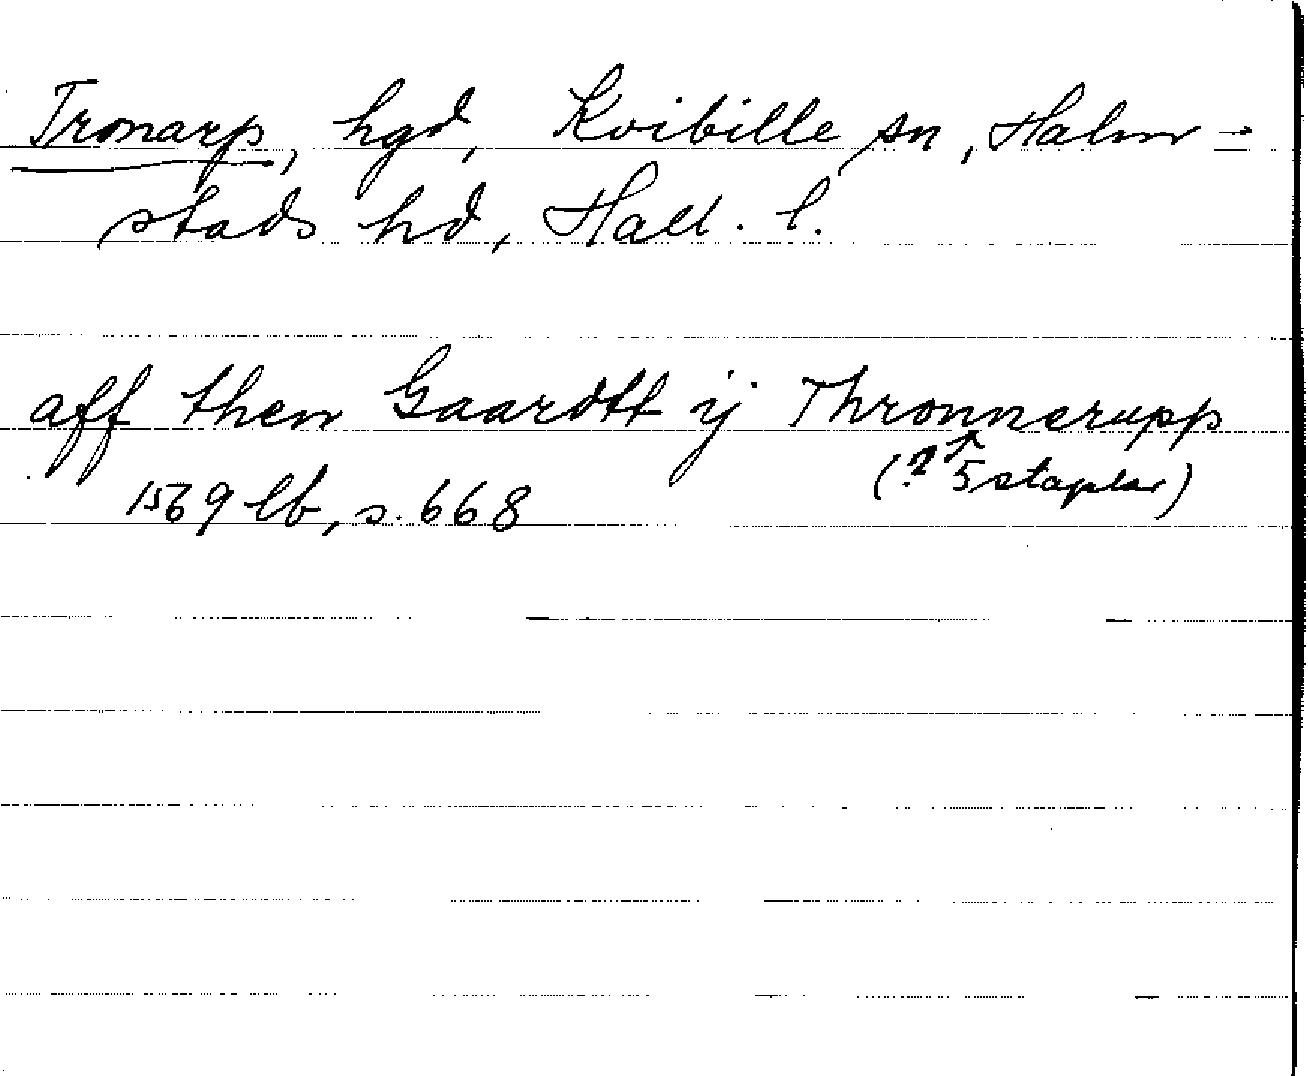 Tronarp, hgd, Kvibille sn, Halm-
stads hd, Hall. l.
aff then Gaardtt ij Thronnerupp
(? 5 staplar)
1569 lb, s. 668